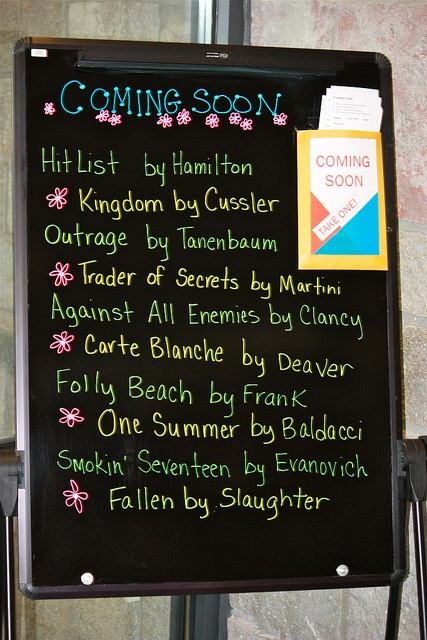 COMING SOON
COMING
SOON
TAKE ONE!
Hit List by Hamilton
Kingdom by Cussler
Outrage by Tanenbaum
Trader of Secrets by Martini
Against All Enemies by Clancy
Carte Blanche by Deaver
Folly Beach by Frank
One Summer by Baldacci
Smokin' Seventeen by Evanovich
Fallen by Slaughter